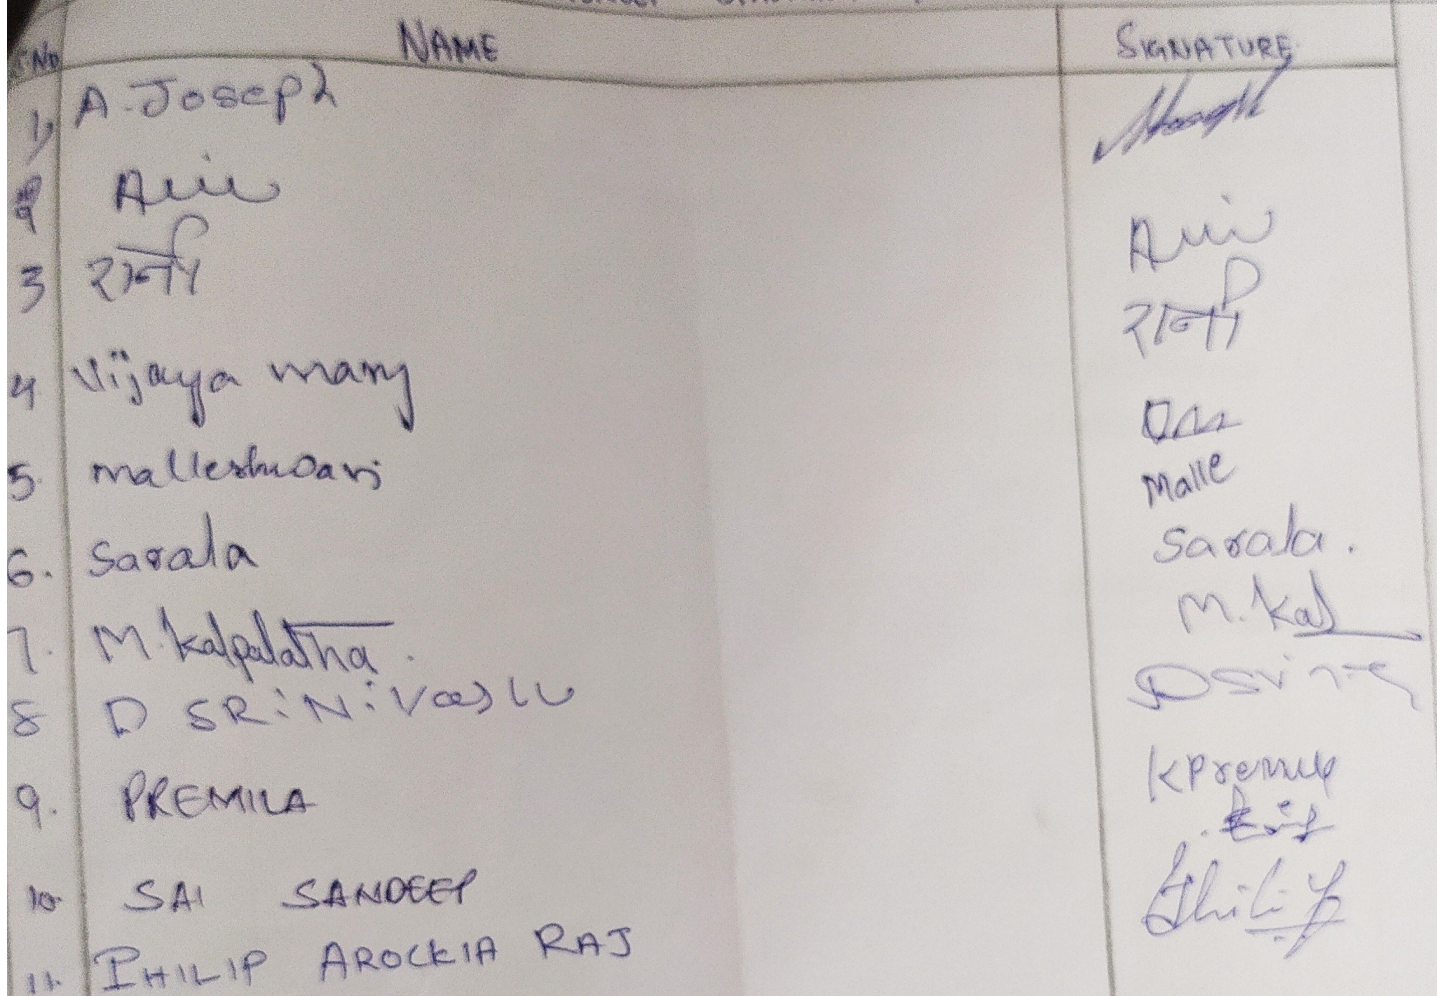 S.No NAME SIGNATURE
1, A. Joseph
3 रानी रानी
4 Vijaya mary
5. malleshwari Malle
6. Sarala Sarala.
7. M. Kalpalatha. M. Kal
8 D SRiNiVasLu
9. PREMILA
10 SAI SANDEEP
11. PHILIP AROCKIA RAJ Philip